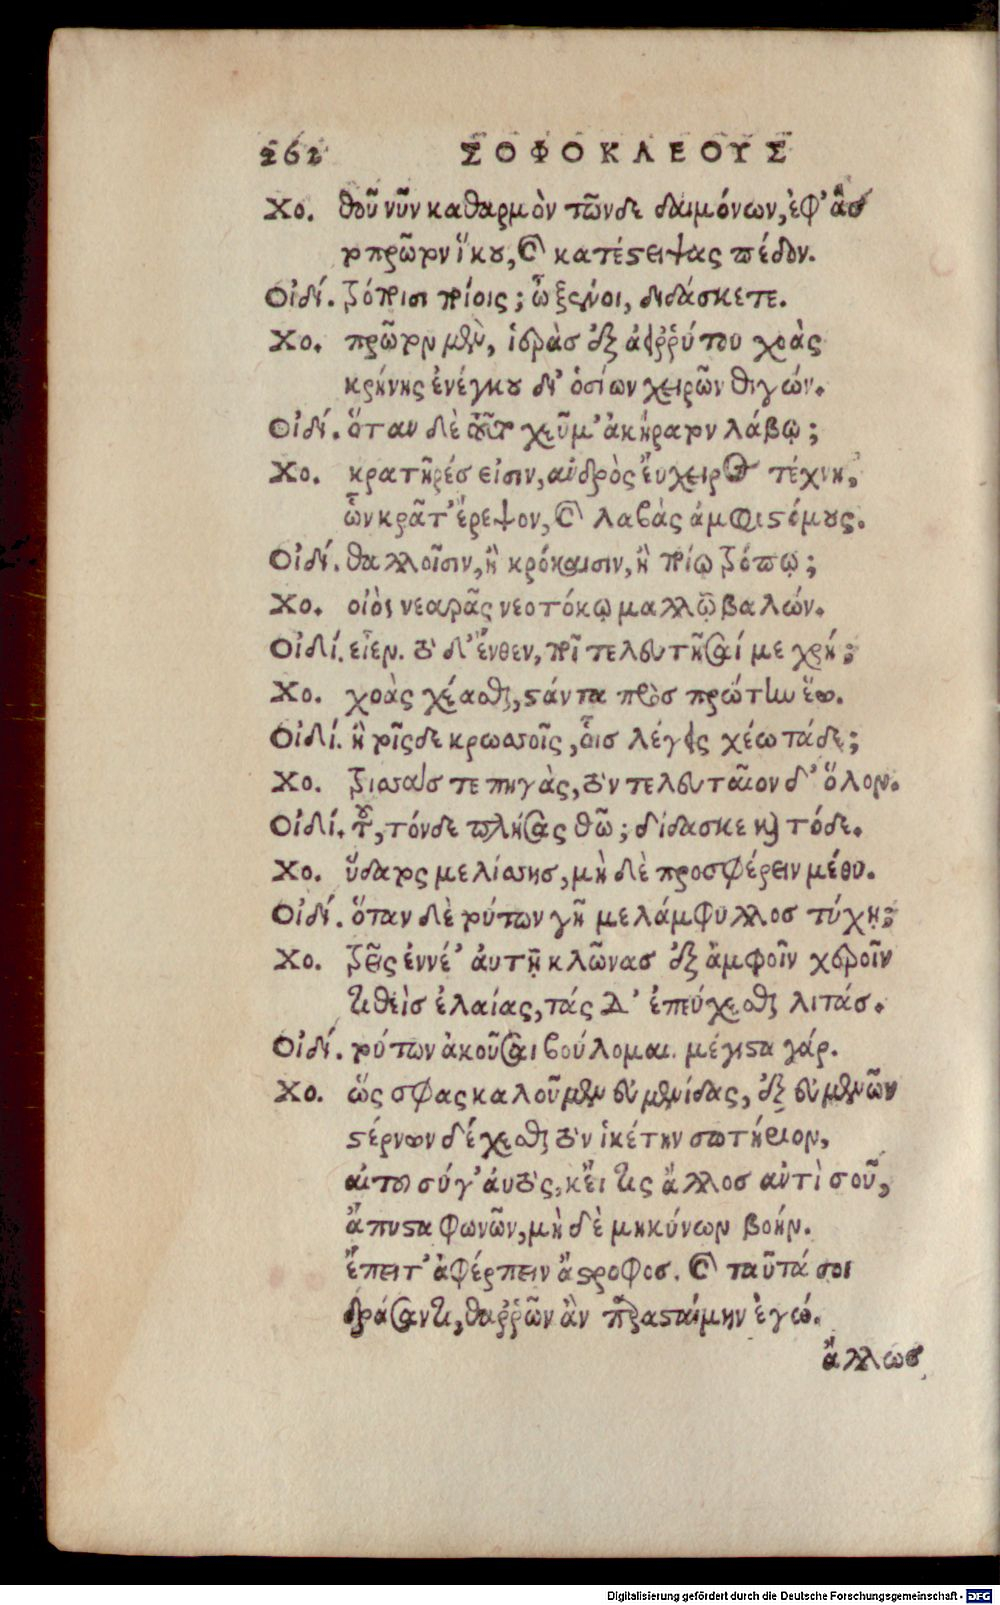 262 ΣΟΦΟΚΛΕΟΥΣ
Χο. θοῦ νῦν καθαρμὸν τῶνδε δαιμόνων, ἐφ' ἃσ
τοπρῶτον ἵκου, καὶ κατέστειψας πέδον.
Οἰδί. τρόποισι ποίοις; ὦ ξένοι, διδάσκετε.
Χο. πρῶτον μὲν, ἱερὰσ ἐξ ἀφρρύτου χοὰς
κρήνης ἐνέγκου δι' ὁσίων χειρῶν θιγών.
Οἰδί. ὅταν δὲ τοῦτο χεῦμ' ἀκήρατον λάβῳ;
Χο. κρατῆρέσ εἰσιν, ἀνδρὸς εὔχειρος τέχνη,
ὧν κρᾶτ' ἔρεψον, καὶ λαβὰς ἀμφιστόμους.
Οἰδί. θαλλοῖσιν, ἢ κρόκαισιν, ἢ ποίῳ τρόπῳ;
Χο. οἰὸς νεαρᾶς νεοτόκῳ μαλλῷ βαλών.
Οἰδί. εἶεν. τὸ δ' ἔνθεν, ποῖ τελευτῆσαί με χρή;
Χο. χοὰς χέασθαι, στάντα πρὸσ πρώτην ἕω.
Οἰδί. ἦ τοῖςδε κρωσσοῖς, οἷσ λέγεις χέω τάδε;
Χο. τρισσάσ τε πηγὰς, τὸν τελευταῖον δ' ὅλον.
Οἰδί. τοῦ, τόνδε πλήσας θῶ; δίδασκε καὶ τόδε.
Χο. ὕδατος μελίσσησ, μὴ δὲ προσφέρειν μέθυ.
Οἰδί. ὅταν δὲ τούτων γῆ μελάμφυλλοσ τύχῃ;
Χο. τρὶς ἐννέ' ἀυτῇ κλῶνασ ἐξ ἀμφοῖν χεροῖν
τιθεὶσ ἐλαίας, τάς δ' ἐπεύχεσθαι λιτάσ.
Οἰδί. τούτων ἀκοῦσαι βούλομαι. μέγιστα γάρ.
Χο. ὥς σφας καλοῦμεν εὐμενίδας, ἐξ εὐμενῶν
στέρνων δέχεσθαι τὸν ἱκέτην σωτήριον,
αἰτοῦ σύγ' ἀυτὸς, κεἴ τις ἄλλοσ ἀντὶ σοῦ,
ἄπυστα φωνῶν, μὴ δὲ μηκύνων βοήν.
ἔπειτ' ἀφέρπειν ἄστροφοσ. καὶ ταῦτά σοι
δράσαντι, θαρρῶν ἂν παρασταίμην ἐγώ.
ἄλλωσ
Digitalisierung gefördert durch die Deutsche Forschungsgemeinschaft - DFG